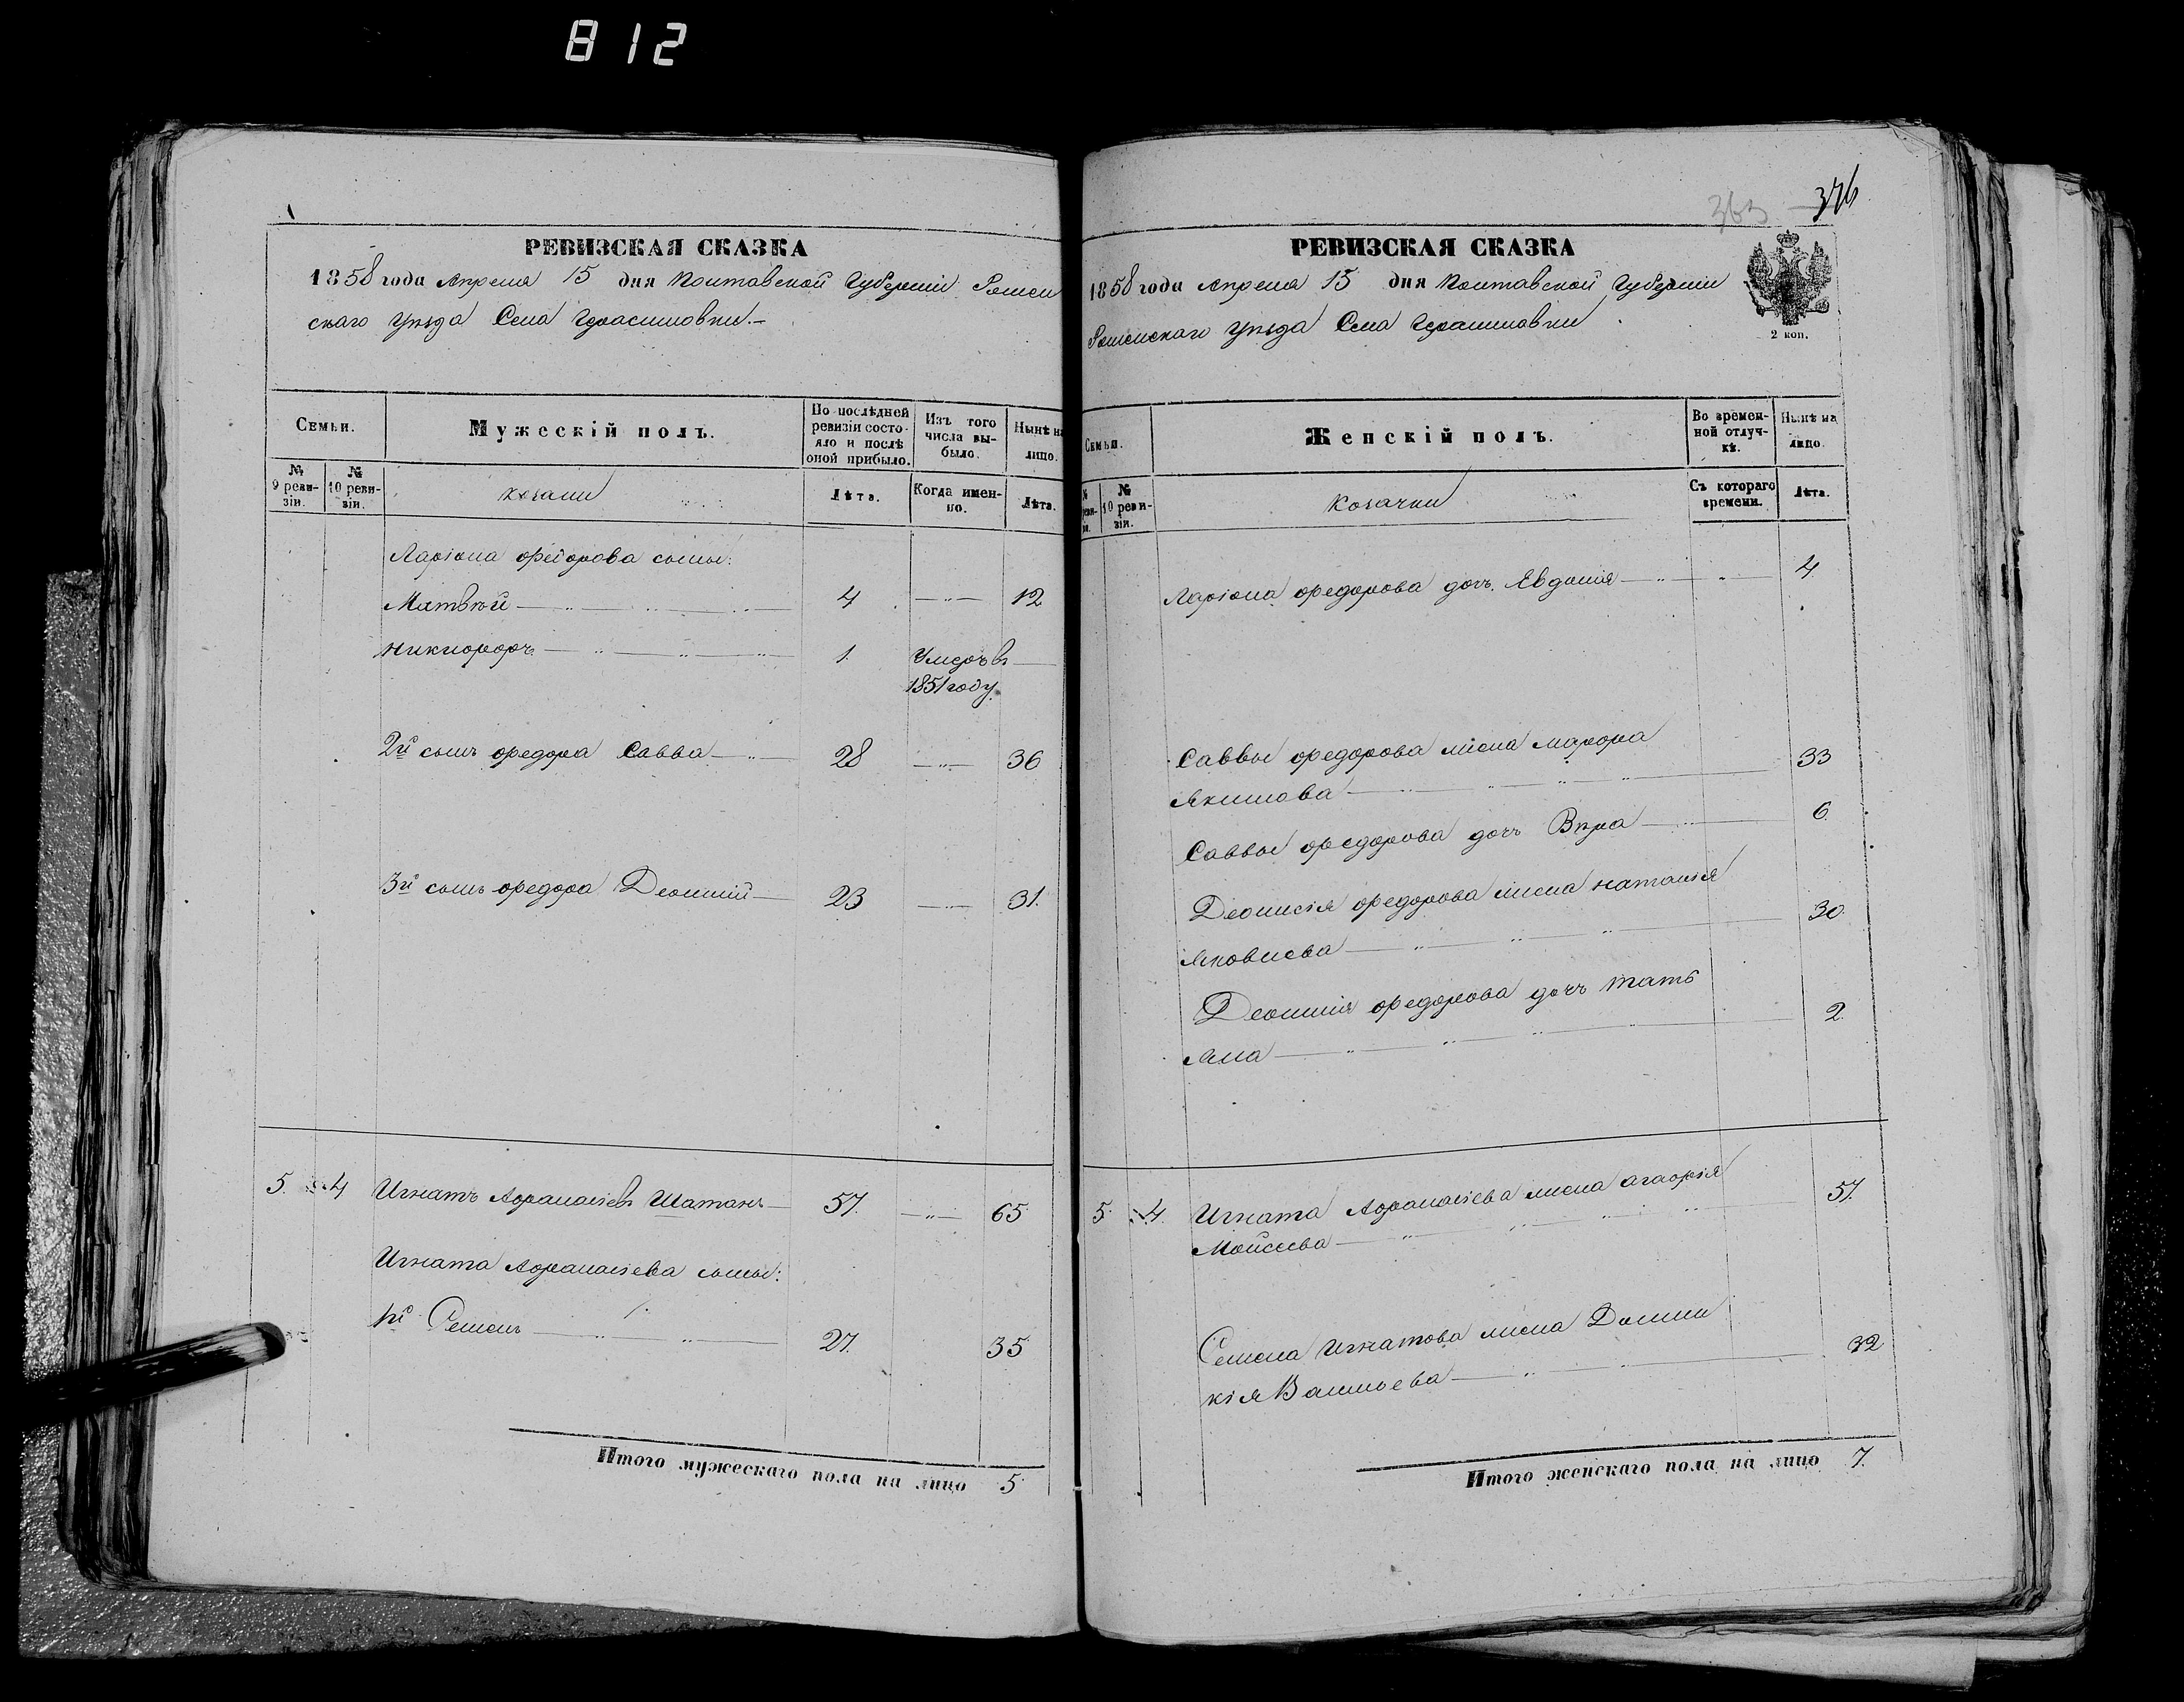 812
РЕВИЗСКАЯ СКАЗКА
1858 года Апреля 15 дня Полтавской Губерніи Ромен
скаго уѣзда Села Герасимовки.
Семьи.
Мужескій полъ.
По послѣдней ревизіи состо-
яло и послѣ оной прибыло.
Изъ того числа вы-
было.
Нынѣ на лицо.
№ 9 реви-
зіи.
№ 10 реви-
зіи.
козаки
Лѣта.
Когда имен-
но.
Лѣта.
Ларіона Федорова сыны:
Матвѣй 4 12
Никифоръ 1. Умеръ въ
1851 году.
2й сынъ Федора Савва 28 36
3й сынъ Федора Деонисій 23 31.
5. 4 Игнатъ Афанасіевъ Шатанъ 57. 65
Игната Афанасіева сыны:
1й Семенъ 27. 35
Итого мужескаго пола на лицо 5
363 376
РЕВИЗСКАЯ СКАЗКА
1858 года Апреля 15 дня Полтавской Губерніи
Роменскаго уѣзда Села Герасимовки
2 коп.
Семьи.
Женскій полъ.
Во времен-
ной отлуч-
кѣ.
Нынѣ на лицо.
№ 10 реви-
зіи.
козачки
Съ котораго времени.
Лѣта.
Ларіона Федорова дочь Евдокія 4
Саввы Федорова жена Марфа
Якимова 33
Саввы Федорова дочь Вѣра 6
Деонисія Федорова жена Наталія
Яковлева 30
Деонисія Федорова дочь Тать
яна 2.
5. 4. Игната Афанасіева жена Агафія
Мойсеева 57.
Семена Игнатова жена Домни
кія Васильева 32
Итого женскаго пола на лицо 7.